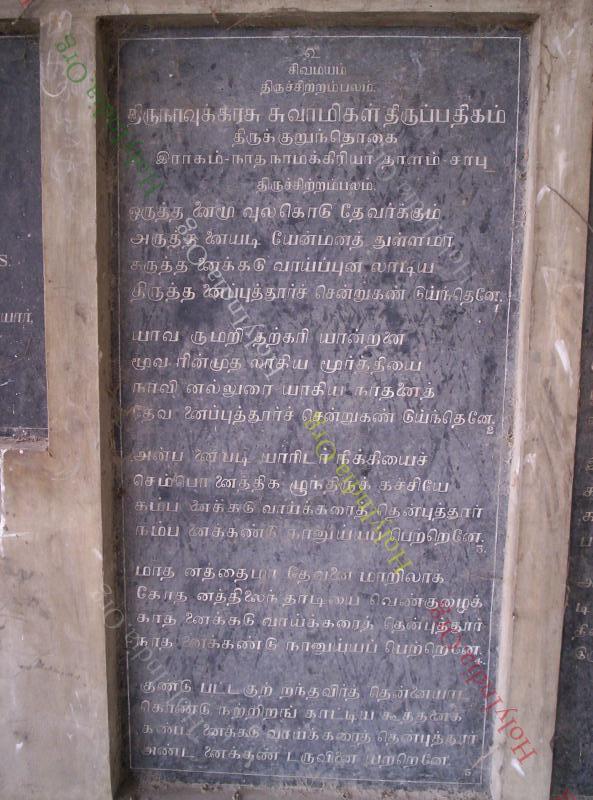 உ
சிவமயம்
திருச்சிற்றம்பலம்.
திருநாவுக்கரசு சுவாமிகள் திருப்பதிகம்
திருக்குறுந்தொகை
இராகம்-நாதநாமக்கிரியா தாளம் சாபு
திருச்சிற்றம்பலம்.
ஒருத்த னைமூ வுலகொடு தேவர்க்கும்
அருத்த னையடி யேன்மனத் துள்ளமர்
கருத்த னைக்கடு வாய்ப்புன லாடிய
திருத்த னைப்புத்தூர்ச் சென்றுகண் டுய்ந்தெனே.
௧
யாவ ருமறி தற்கரி யான்றனை
மூவ ரின்முத லாகிய மூர்த்தியை
நாவி னல்லுரை யாகிய நாதனைத்
தேவ னைப்புத்தூர்ச் சென்றுகண் டுய்ந்தெனே.
௨
அன்ப னையடி யாரிடர் நீக்கியைச்
செம்பொ னைத்திக ழுந்திருக் கச்சியே
கம்ப னைக்கடு வாய்க்கரைத் தென்புத்தூர்
நம்ப னைக்கண்டு நானுய்யப் பெற்றெனே.
௩
மாத னத்தைமா தேவனை மாறிலாக்
கோத னத்திலைந் தாடியை வெண்குழைக்
காத னைக்கடு வாய்க்கரைத் தென்புத்தூர்
நாத னைக்கண்டு நானுய்யப் பெற்றெனே.
௪
குண்டு பட்டகுற் றந்தவிர்த் தென்னையாட்
கொண்டு நற்றிறங் காட்டிய கூத்தனைக்
கண்ட னைக்கடு வாய்க்கரைத் தென்புத்தூர்
அண்ட னைக்கண் டருவினை யற்றெனே.
௫
யார்,
HolyIndia.Org
HolyIndia.Org
HolyIndia.Org
HolyIndia.Org